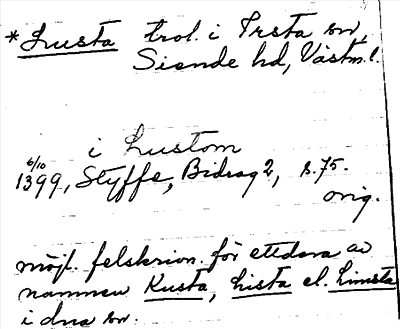 *Lusta trol. i Irsta sn,
Siende hd, Västm. l.
i Lustom
6/10
1399, Styffe, Bidrag 2, s. 75.
orig.
möjl. felskrivn. för ettdera av
namnen Kusta, Lista el. Limsta
i dna sn.